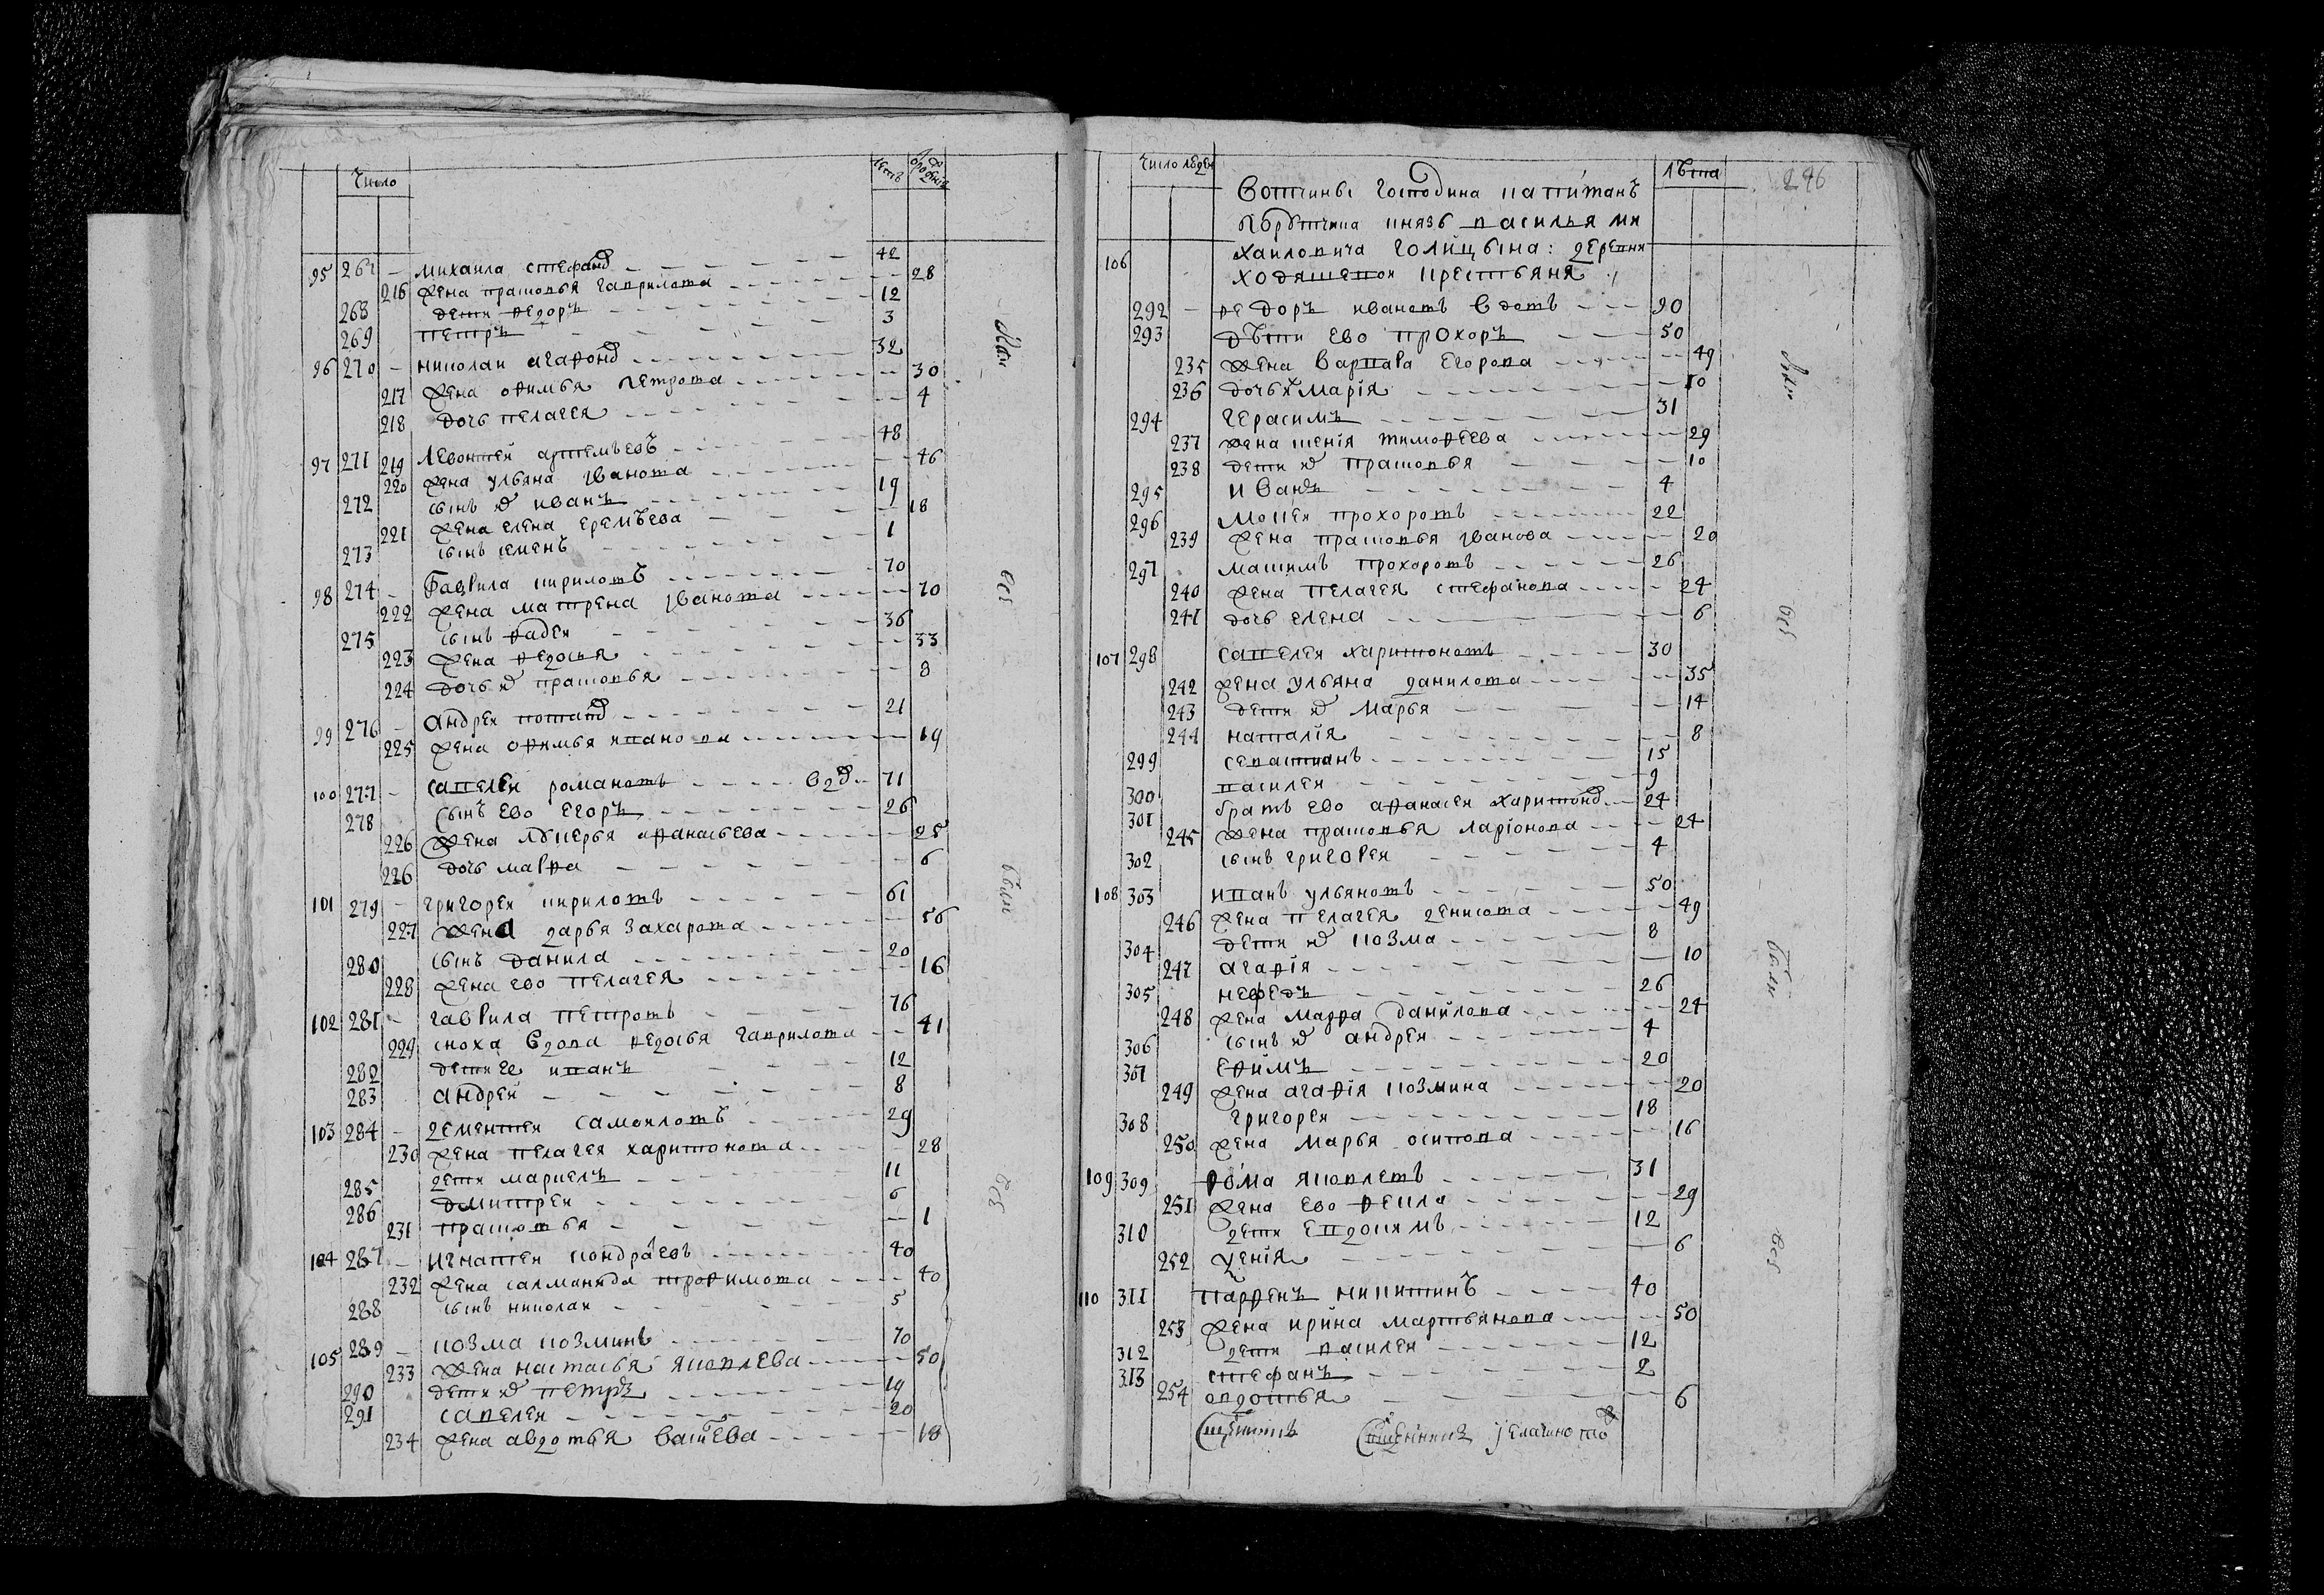 Число
лета
95 267 михаила стефанов 42
216 жена прасковья гаврилова 28
268 дети федоръ 12
269 петръ 3
96 270 николаи агафонов 32
217 жена офимья петрова 30
218 дочь пелагея 4
97 271 219 Левонтей артемьевъ 48
220 жена ульяна ивановa 46
272 сынъ их иванъ 19
221 жена елена еремѣева 18
273 сынъ семенъ 1
98 274 Гаврила кириловъ 70
222 жена матрена иванова 70
275 сынъ фадеи 36
223 жена федосья 33
224 дочь их прасковья 8
99 276 Андреи потапов 21
225 жена офимья иванова 19
100 277 савелеи романовъ вдов 71
278 сынъ ево егоръ 26
226 жена лукерья афанасьева 25
226 дочь мавра 6
101 279 григореи кириловъ 61
227 жена дарья захарова 56
280 сынъ данила 20
228 жена ево пелагея 16
102 281 гаврила петровъ 76
229 сноха вдова федосья гаврилова 41
282 дети ее иванъ 12
283 андрей 8
103 284 дементеи самоиловъ 29
230 жена пелагея харитонова 28
285 дети маркелъ 11
286 дмитреи 6
231 прасковья 1
104 287 игнатеи кондраевъ 40
232 жена саламанида трофимова 40
288 сынъ николаи 5
105 289 козма козминъ 70
233 жена настасья яковлева 50
290 дети их петръ 19
291 савелеи 20
234 жена авдотья 18
Маи
без
без
Число людеи
лѣта
296
106 Вотчины господина капитанъ
князь василья ми
хаиловича голицына: деревни
ходяшевои крестьяня
292 федоръ ивановъ вдовъ 90
293 дѣти ево прохоръ 50
235 жена варвара егорова 49
236 дочь их марія 10
294 герасимъ 31
237 жена ксенія тимофеева 29
238 дети их прасковья 10
295 иванъ 4
296 мокеи прохоровъ 22
239 жена прасковья иванова 20
297 максимъ прохоровъ 26
240 жена пелагея стефанова 24
241 дочь елена 6
107 298 савелеи харитоновъ 30
242 жена ульяна данилова 35
243 дети их марья 14
244 наталія 8
299 севастианъ 15
300 василеи 9
301 братъ ево афанасеи харитонов 24
245 жена прасковья ларіонова 24
302 сынъ григореи 4
108 303 иванъ ульяновъ 50
246 жена пелагея денисова 49
304 дети их козма 8
247 агафія 10
305 нефедъ 26
248 жена марфа данилова 24
306 сынъ их андреи 4
307 ефимъ 20
249 жена агафія козмина 20
308 григореи 18
250 жена марья осипова 16
109 309 фома яковлевъ 31
251 жена ево фекла 29
310 дети евдокимъ 12
252 6
110 311 парфенъ никитинъ 40
253 жена ирина мартьянова 50
312 дети василеи 12
313 стефанъ 2
254 овдотья 6
без
без